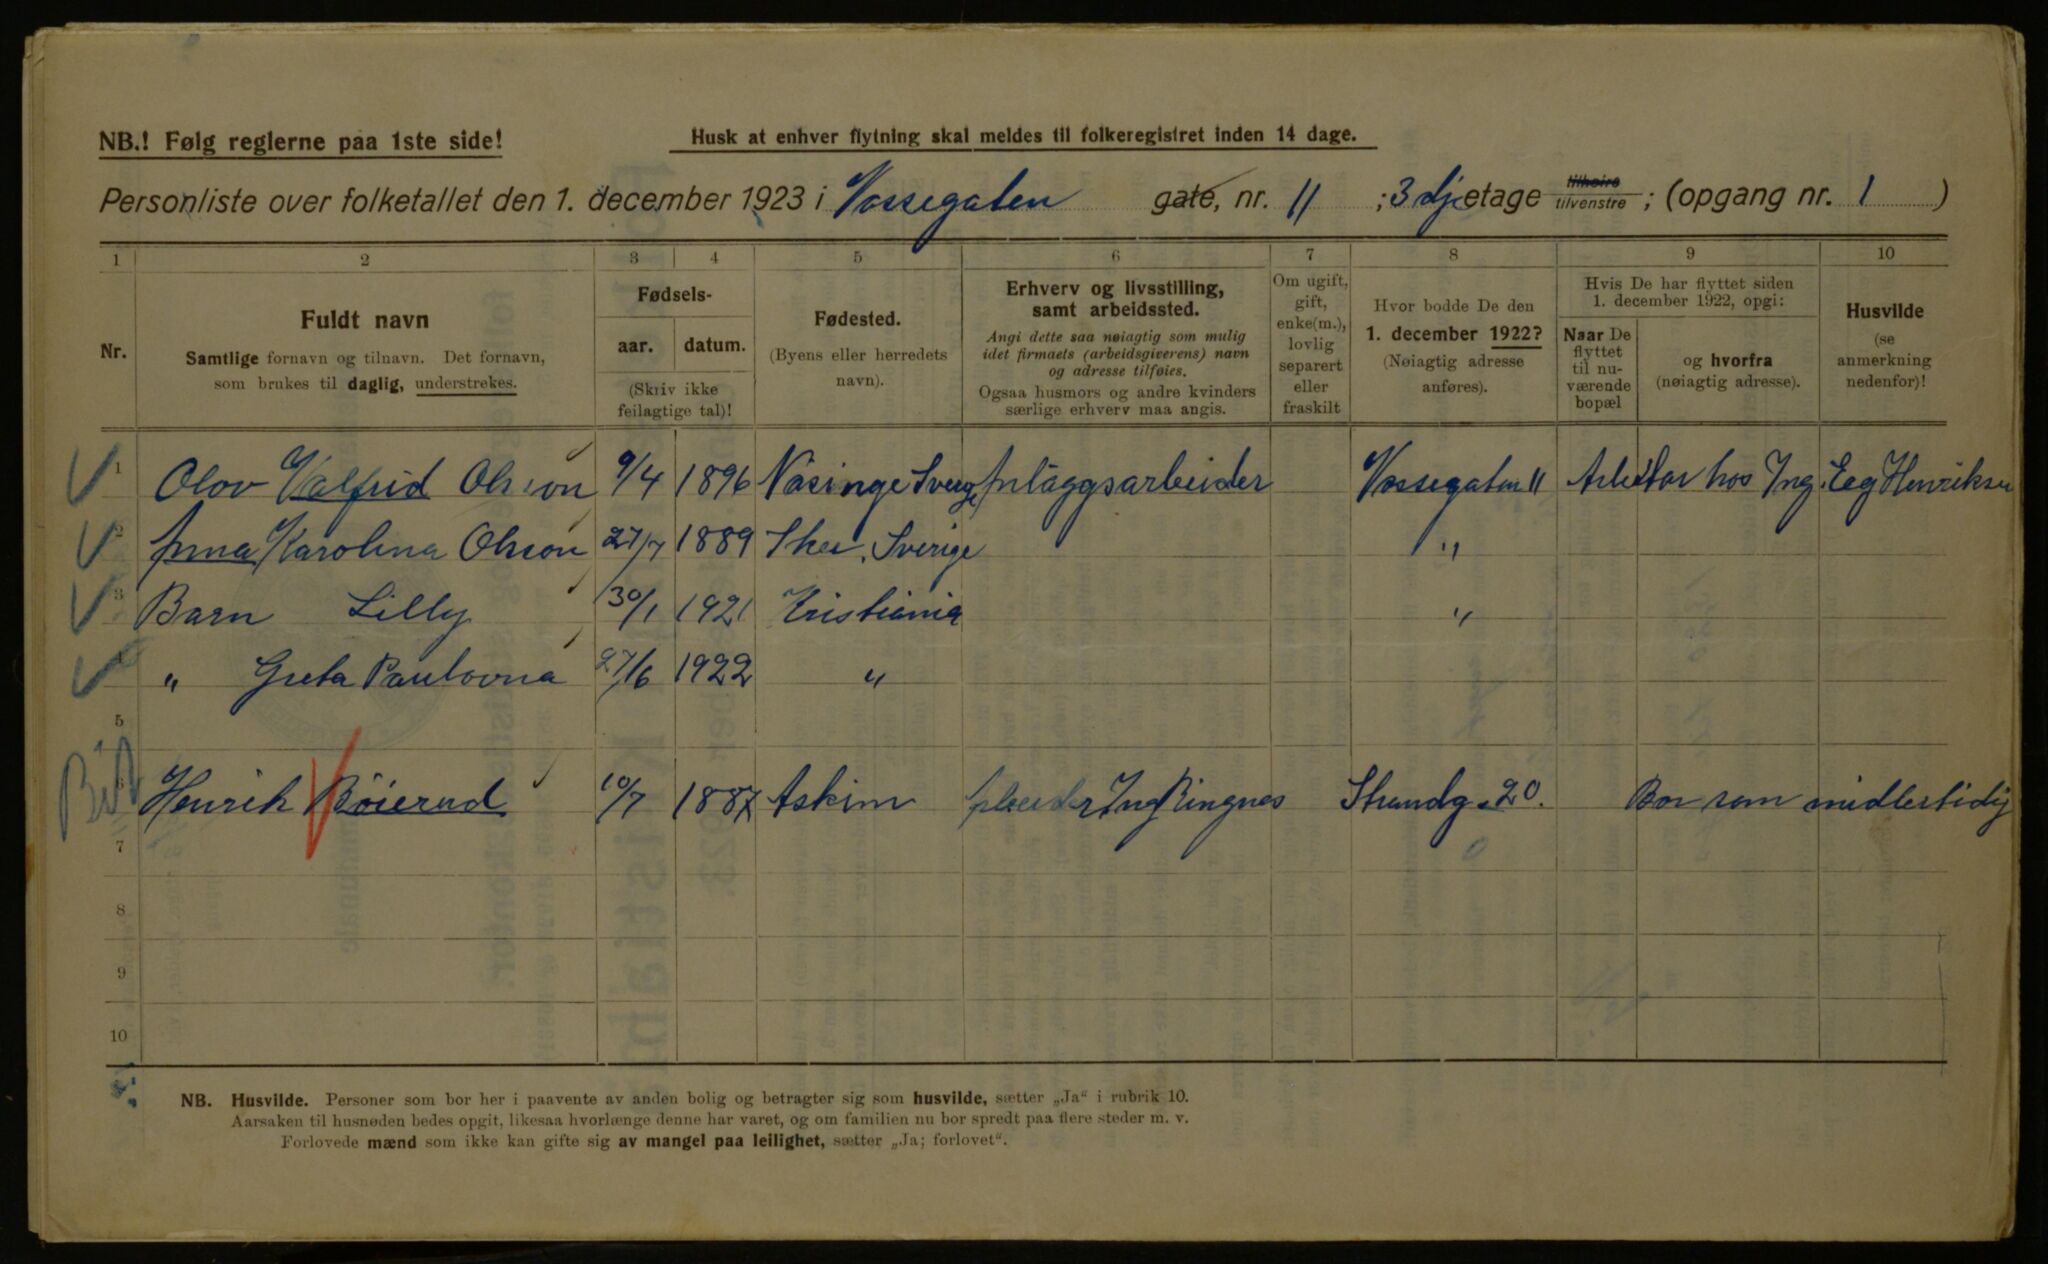 NB.! Følg reglerne paa 1ste side!
Husk at enhver flytning skal meldes til folkeregistret inden 14 dage.
Personliste over folketallet den 1. december 1923 i Vossegaten gate, nr. 11 ; 3dje etage tilhøire tilvenstre ; (opgang nr. 1 )
1 2 3 4 5 6 7 8 9 10
Nr.
Fuldt navn
Samtlige fornavn og tilnavn. Det fornavn,
som brukes til daglig, understrekes.
Fødsels-
aar. datum.
(Skriv ikke
feilagtige tal)!
Fødested.
(Byens eller herredets
navn).
Erhverv og livsstilling,
samt arbeidssted.
Angi dette saa nøiagtig som mulig
idet firmaets (arbeidsgiverens) navn
og adresse tilføies.
Ogsaa husmors og andre kvinders
særlige erhverv maa angis.
Om ugift,
gift,
enke(m.),
lovlig
separert
eller
fraskilt
Hvor bodde De den
1. december 1922?
(Nøiagtig adresse
anføres).
Hvis De har flyttet siden
1. december 1922, opgi:
Naar De
flyttet
til nu-
værende
bopæl
og hvorfra
(nøiagtig adresse).
Husvilde
(se
anmerkning
nedenfor)!
1 Olov Valfrid Olsson 9/4 1896 Näsinge Sverge Anläggsarbeider Vossegaten 11 Arbeidar hos Ing. Eeg Henriksen
2 Anna Karolina Olsson 27/7 1889 Skee, Sverige "
3 Barn Lilly 30/1 1921 Kristiania "
4 " Greta Paulovna 27/6 1922 "
5
6 Henrik Bøierud 10/7 1887 Askim Arbeider Ing Ringnes Strandg. 20. Bor som midlertidig
7
8
9
10
NB. Husvilde. Personer som bor her i paavente av anden bolig og betragter sig som husvilde, sætter „Ja“ i rubrik 10.
Aarsaken til husnøden bedes opgit, likesaa hvorlænge denne har varet, og om familien nu bor spredt paa flere steder m. v.
Forlovede mænd som ikke kan gifte sig av mangel paa leilighet, sætter „Ja; forlovet“.